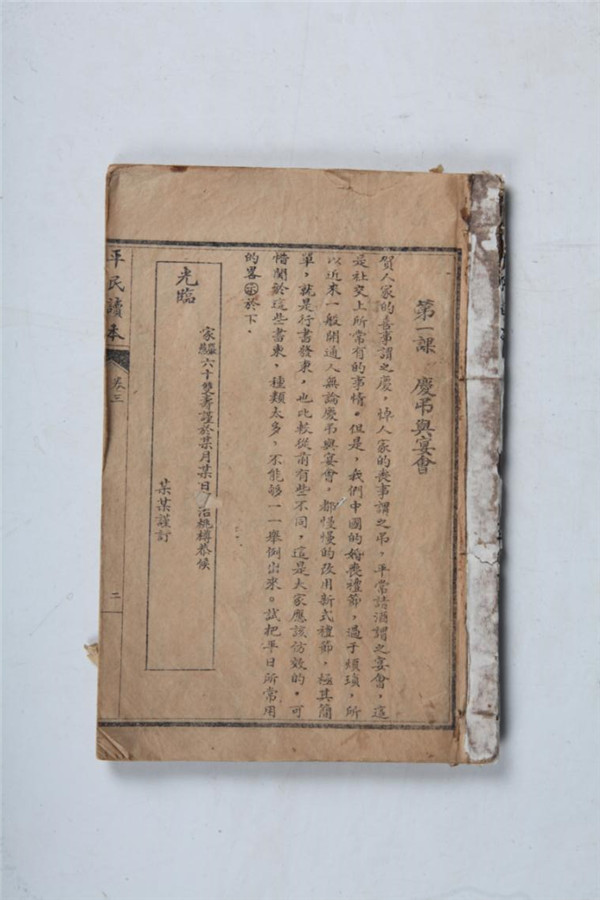 第一課　慶弔與宴會
賀人家的喜事謂之慶，悼人家的喪事謂之弔，平常請酒謂之宴會，這
是社交上所常有的事情。但是，我們中國的婚喪禮節，過于煩瑣，所
以近來一般開通人無論慶弔與宴會，都慢慢的改用新式禮節，極其簡
單，就是行書發柬，也比較從前有些不同，這是大家應該仿效的。可
惜關於這些書柬，種類太多，不能够一一舉例出來。試把平日所常用
的畧示於下。
家嚴慈六十雙壽謹於某月某日治桃樽恭候
光臨
某某謹訂
平民讀本
卷三
二